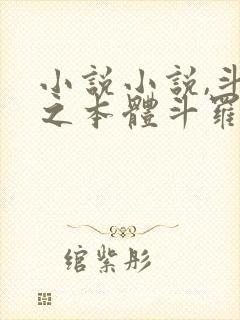 小說小說,斗
之本體斗羅
綰紫彤